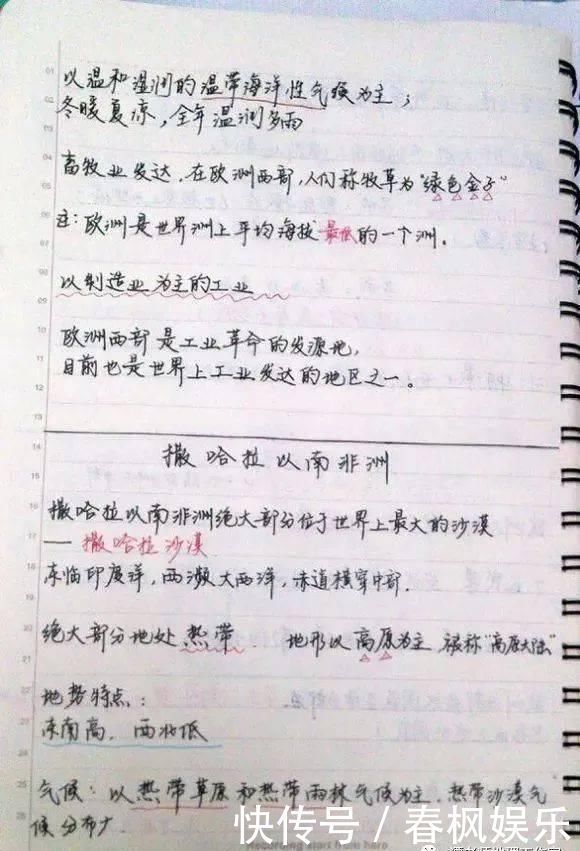 以温和湿润的温带海洋性气候为主
冬暖夏凉，全年温润多雨
畜牧业发达，在欧洲西部，人们称牧草为“绿色金子”
注：欧洲是世界洲上平均海拔最低的一个洲。
以制造业为主的工业
欧洲西部是工业革命的发源地，
目前也是世界上工业发达的地区之一。
撒哈拉以南非洲
撒哈拉以南非洲绝大部分位于世界上最大的沙漠
— 撒哈拉沙漠
东临印度洋，西濒大西洋，赤道横穿中部.
绝大部分地处热带. 地形以高原为主，被称“高原大陆”
地势特点：
东南高，西北低
气候：以热带草原和热带雨林气候为主，热带沙漠气
候分布广.
快传号 / 春枫娱乐
Recording start from here